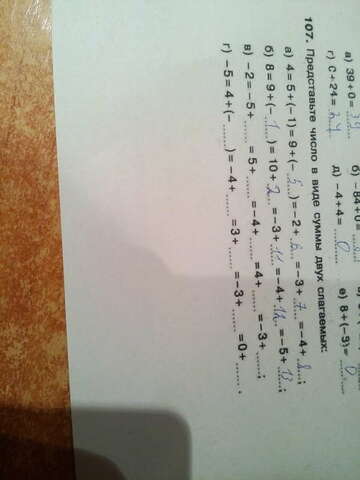 а) 39+0= 39
б) -84+0=
г) 0+24= 24
д) -4+4= 0
е) 8+(-9)= 0
107. Представьте число в виде суммы двух слагаемых:
а) 4=5+(-1)=9+(-5)=-2+6=-3+7=-4+8;
б) 8=9+(-1)=10+2=-3+11=-4+12=-5+13;
в) -2=-5+......=5+......=-4+......=4+......=-3+......;
г) -5=4+(-......)=-4+......=3+......=-3+......=0+...... .